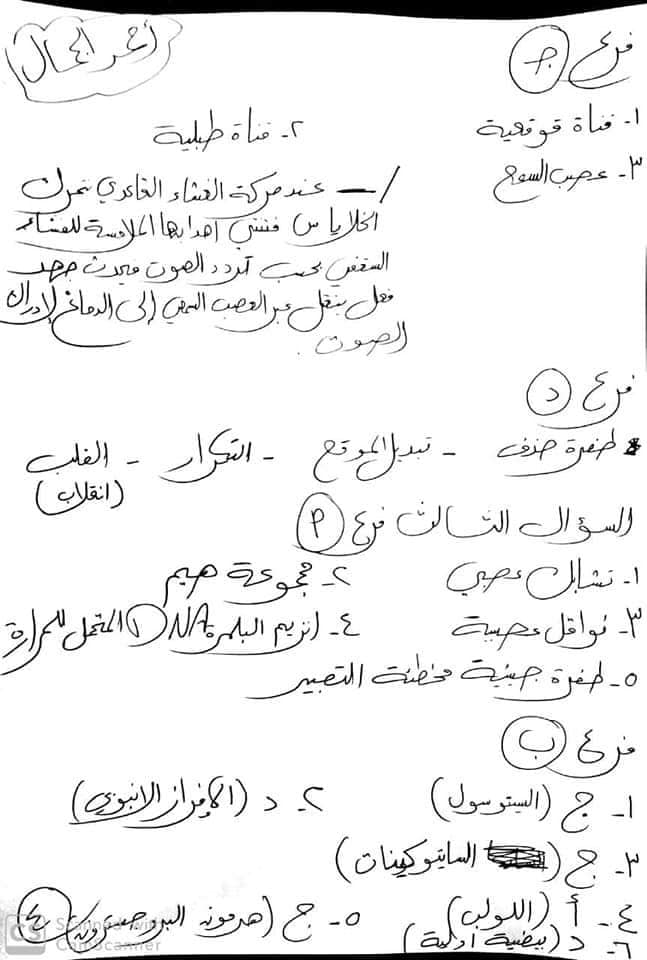 أشعر الجمال
فرع جـ
١- قناة قوقعية ٢- قناة طبلية
٣- عصب السمع
/ — عند حركة الغشاء القاعدي تتحرك
الخلايا س فتنثني اهدابها الملامسة للغشاء
السقفي بحسب تردد الصوت فيحدث جهد
فعل ينتقل عبر العصب السمعي إلى الدماغ لإدراك
الصوت.
فرع د
طفرة حذف - تبديل الموقع - التكرار - القلب
(انقلاب)
السؤال الثالث فرع P
١- تشابك عصبي ٢- مجموعة هيم
٣- نواقل عصبية ٤- انزيم البلمرة DNA المتحمل للحرارة
٥- طفرة جينية مخطئة التعبير
فرع ب
١- ج (السيتوسول) ٢- د (الإفراز الانبوبي)
٣- ج (السايتوكينات)
٤- أ (اللولب) ٥- ج (هرمون البروجسترون)
٦- د (بيضية اولية)
٤
CS Scanned with
CamScanner